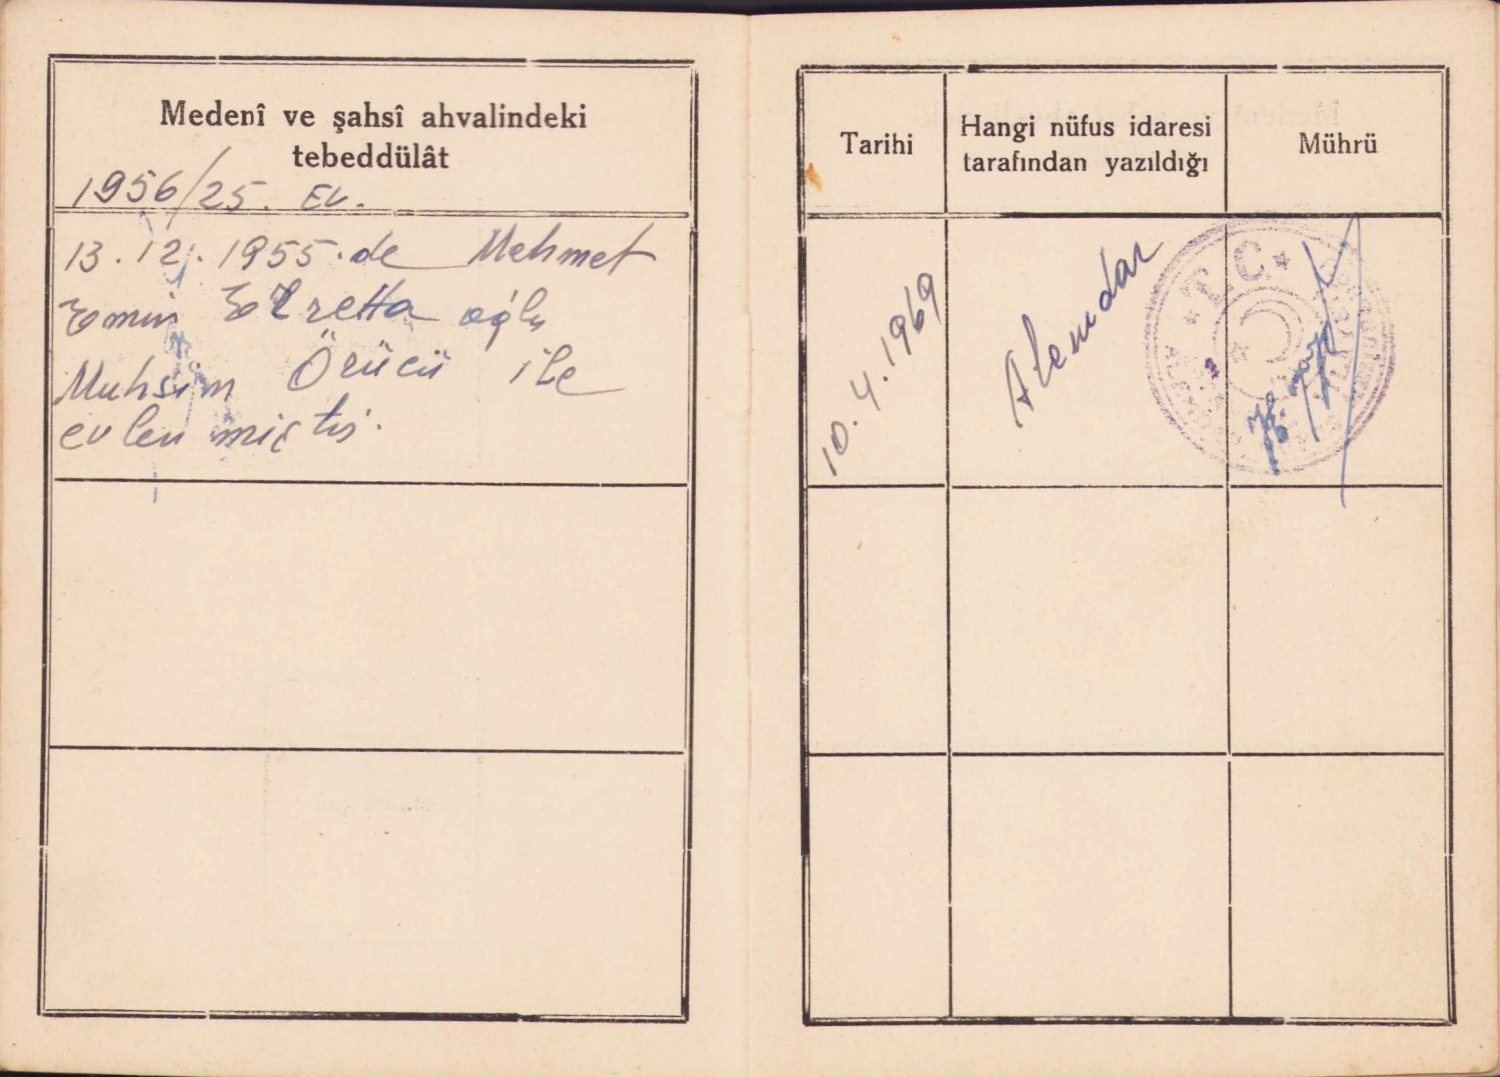 Medenî ve şahsî ahvalindeki
tebeddülât
1956/25. Ev.
13.12.1955.de Mehmet
Emin oğlu
Muhsin Örücü ile
evlenmiştir.
Tarihi
Hangi nüfus idaresi
tarafından yazıldığı
Mührü
10.4.1969
Alemdar
T.C.